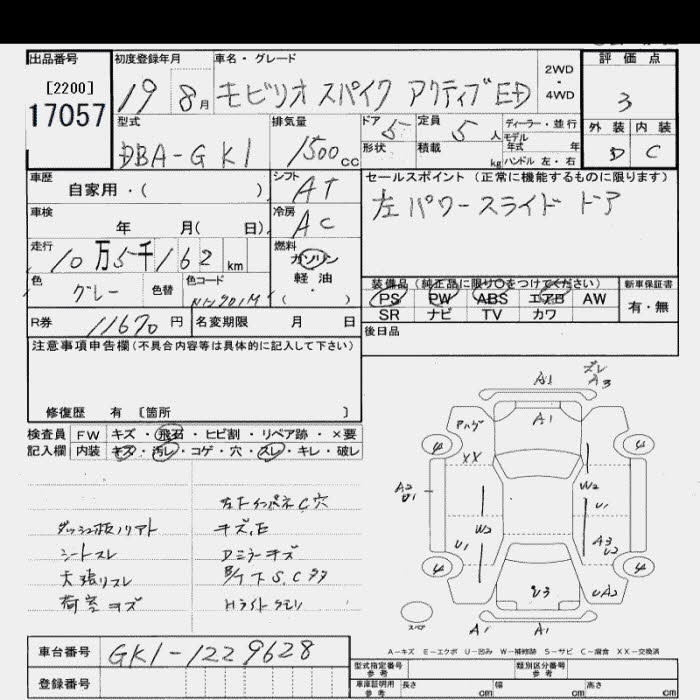 出品番号 初度登録年月 車名・グレード 評価点
[2200] 19 8月 モビリオ スパイク アクティブED 2WD・4WD 3
17057
型式 排気量 ドア 5 定員 5人 ディーラー・並行 外装 内装
DBA-GK1 1500cc 形状 積載 kg モデル年式 年 D C
ハンドル 左・右
車歴 シフト セールスポイント (正常に機能するものに限ります)
自家用・( ) AT 左 パワースライド ドア
車検 冷房
年 月( 日) AC
走行 燃料
10万5千162km ガソリン
軽油
・( )
色 グレー 色替 色コード 装備品(純正品に限り○をつけてください) 新車保証書
PS PW ABS エアB AW 有・無
SR ナビ TV カワ
R券 11670円 名変期限 月 日 後日品
注意事項申告欄(不具合内容等は具体的に記入して下さい)
修復歴 有 [箇所 ]
検査員 FW キズ・飛石・ヒビ割・リペア跡・×要
記入欄 内装 キズ・汚レ・コゲ・穴・スレ・キレ・破レ
左下インパネC穴
キズ、E
シートスレ Dミラーキズ
天張リスレ
荷室キズ Hライトクモリ
A1 ズレ A3
A1
XX
A2 U1
W2 U1
W2
U1 A3 U2
U3 UA2
スペア A1 A1
A−キズ E−エクボ U−凹み W−補修跡 S−サビ C−腐食 XX−交換済
車台番号 GK1-1229628
登録番号
型式指定番号 参考 類別区分番号 参考
車庫証明用 参考 長さ cm 幅 cm 高さ cm